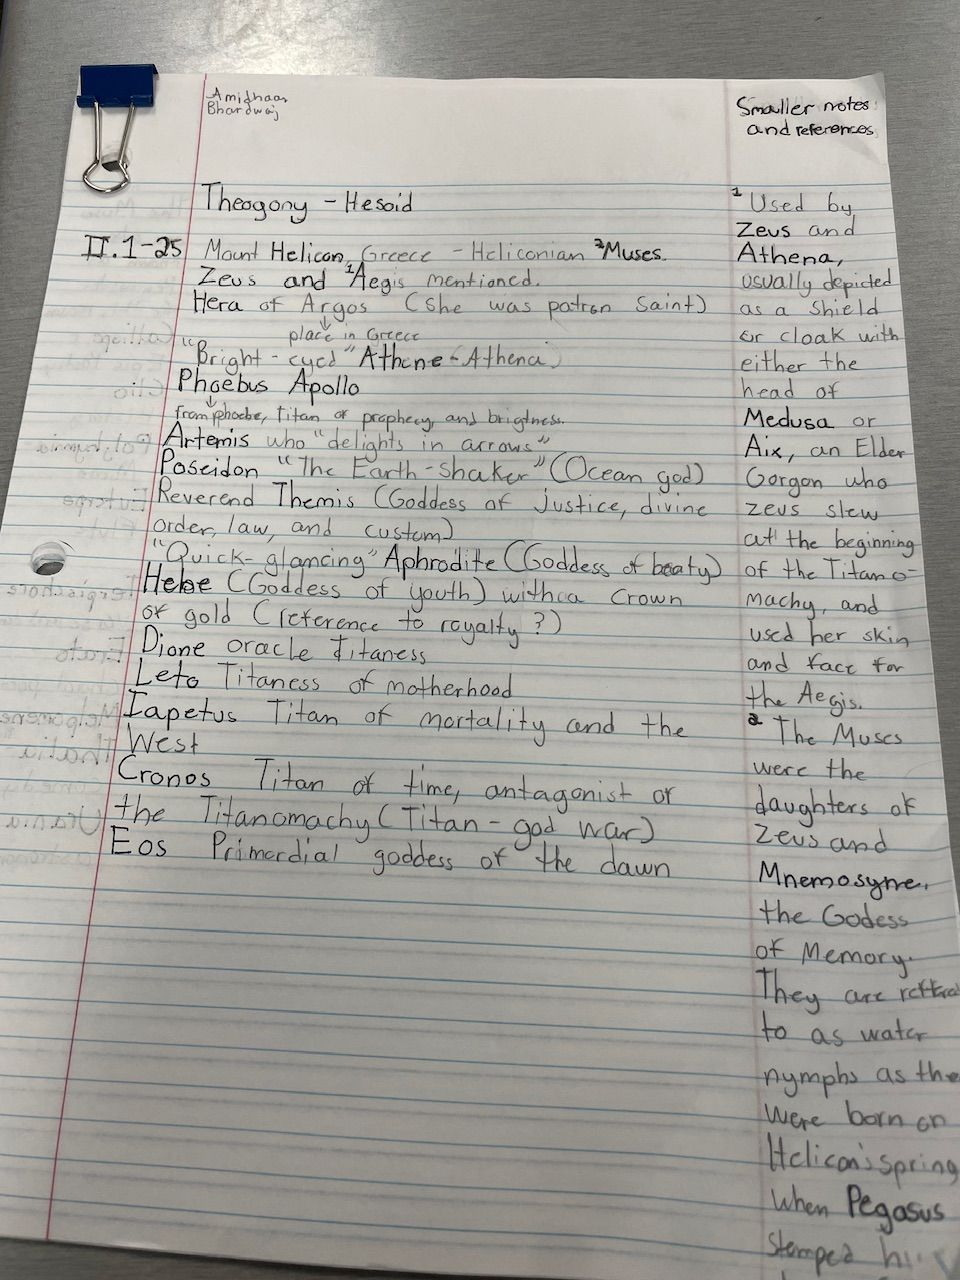 Amidhaas
Bhardwaj
Smaller notes
and references
Theogony - Hesoid
II.1-25 Mount Helicon, Greece - Heliconian ²Muses.
Zeus and ¹Aegis mentioned.
Hera of Argos (She was patron Saint)
↓
place in Greece
"Bright-eyed" Athene - Athena)
Phoebus Apollo
↓
from phoebe, Titan of prophecy, and brightness.
Artemis who "delights in arrows"
Poseidon "The Earth-Shaker" (Ocean god)
Reverend Themis (Goddess of justice, divine
order, law, and custom)
"Quick-glancing" Aphrodite (Goddess of beaty)
Hebe (Goddess of youth) with a Crown
of gold (reference to royalty?)
Dione oracle Titaness
Leto Titaness of motherhood
Iapetus Titan of mortality and the
West
Cronos Titan of time, antagonist of
the Titanomachy (Titan-god war)
Eos Primordial goddess of the dawn
¹ Used by
Zeus and
Athena,
usually depicted
as a shield
or cloak with
either the
head of
Medusa or
Aix, an Elder
Gorgon who
zeus slew
at the beginning
of the Titano-
machy, and
used her skin
and face for
the Aegis.
² The Muses
were the
daughters of
Zeus and
Mnemosyne,
the Godess
of Memory.
They are
to as water
nymphs as the
were born on
Helicon's spring
when Pegasus
stomped